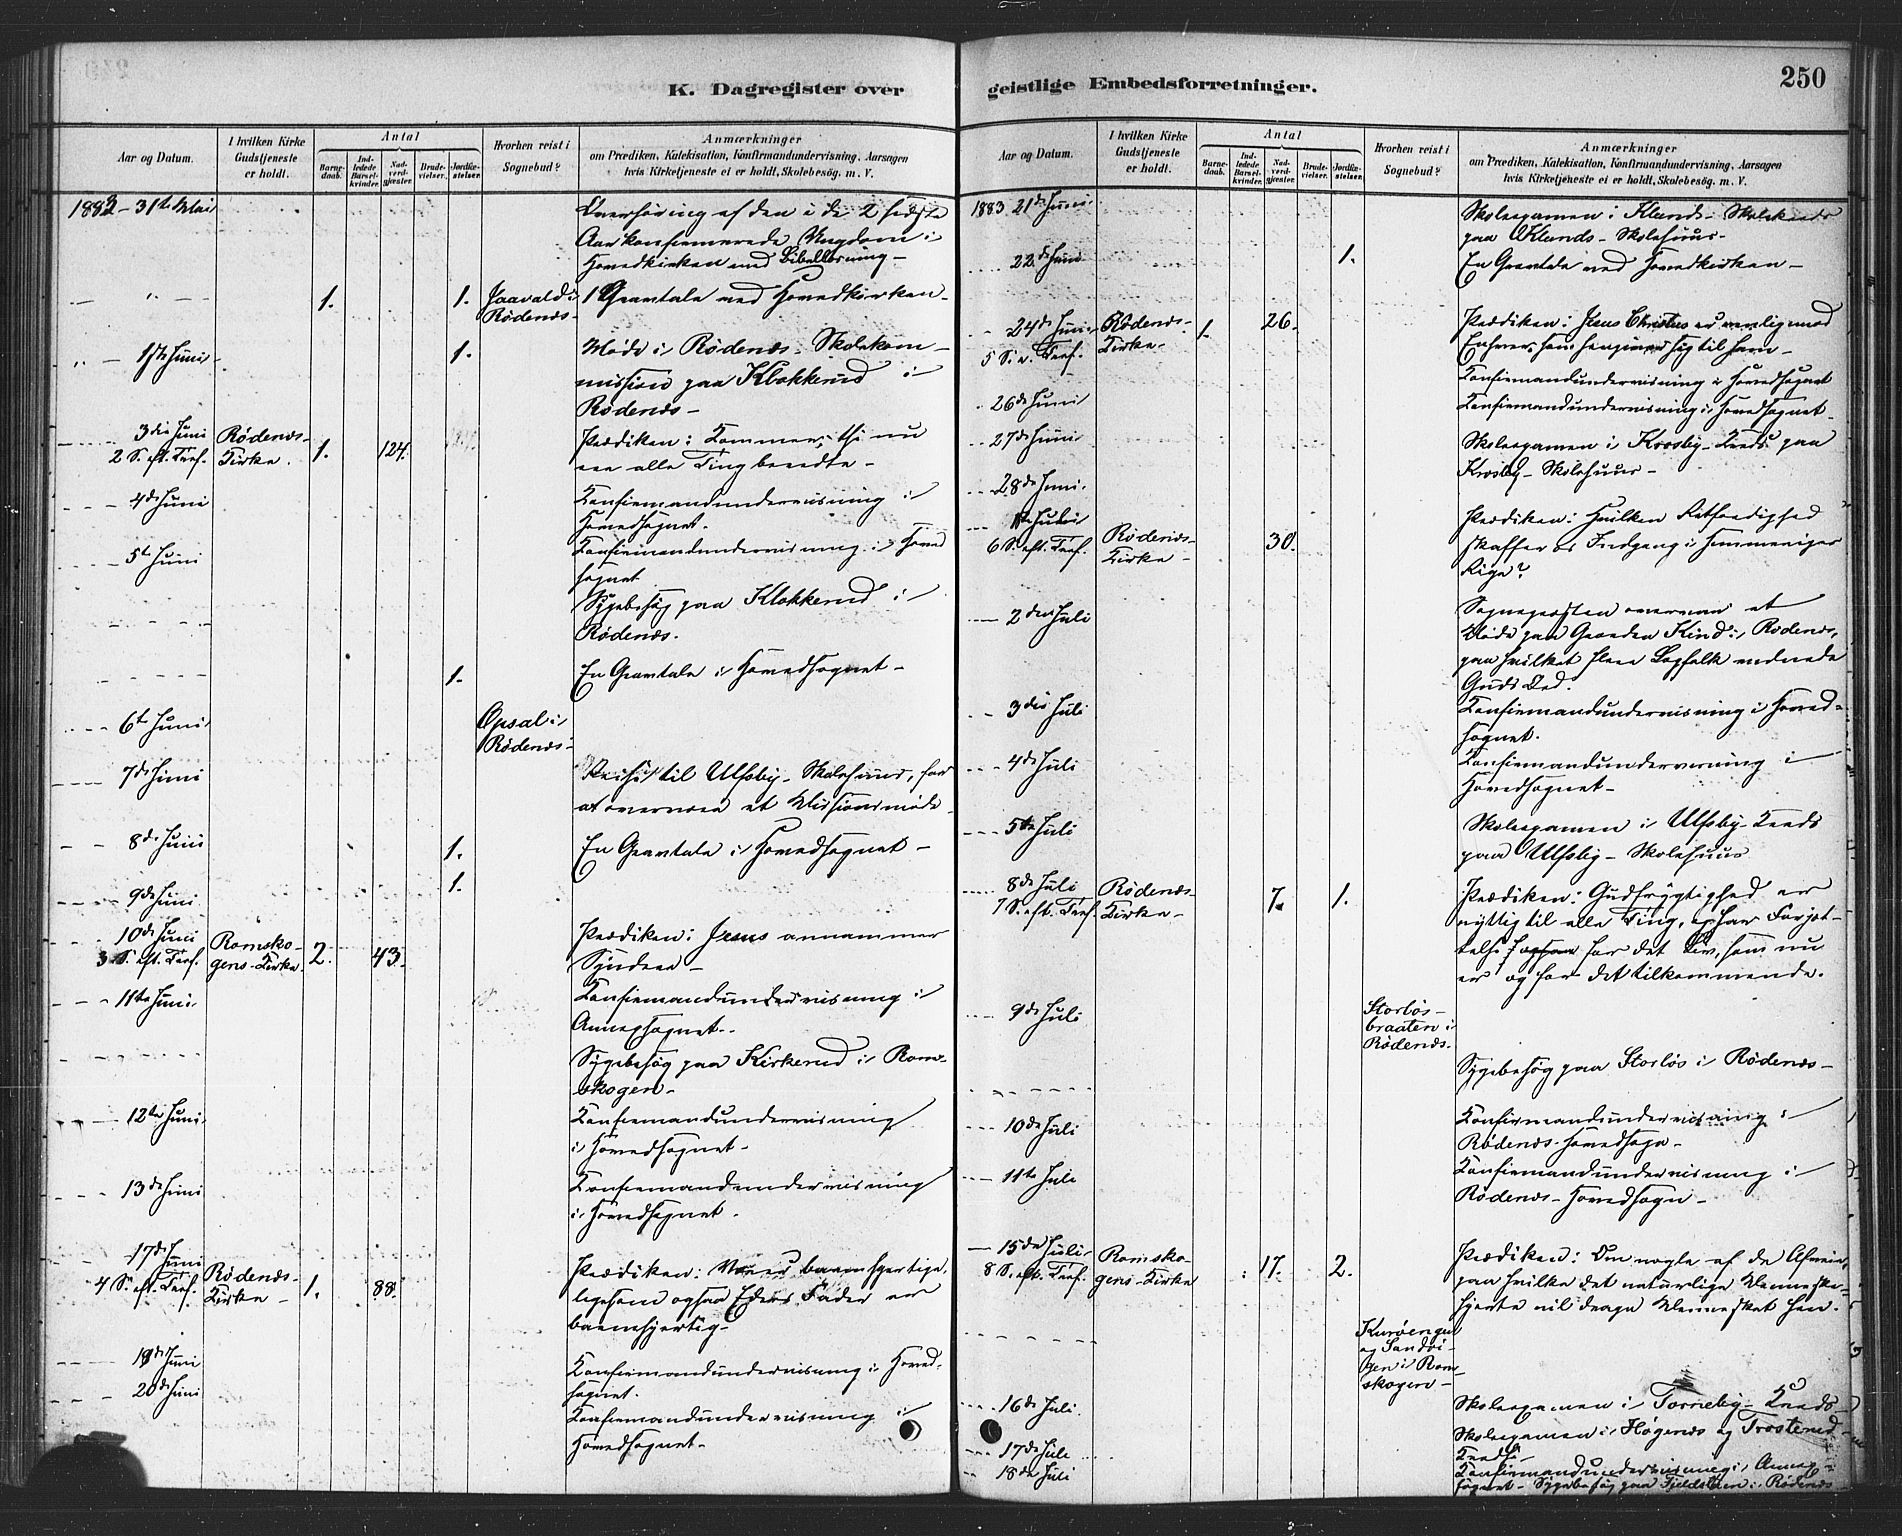 K. Dagregister over
Aar og Datum.
I hvilken Kirke Gudstjeneste er holdt.
Antal
Barnedaab.
Indledede Barselkvinder.
Nadverdgjester.
Brudevielser.
Jordfæstelser.
Hvorhen reist i Sognebud?
Anmærkninger
om Prædiken, Katekisation, Konfirmandundervisning, Aarsagen
hvis Kirketjeneste ei er holdt, Skolebesøg. m. V.
1883 - 31te Mai
Overhøring af den i de 2 sidste
Aar konfirmerede Ungdom i
Hovedkirken med Bibellæsning -
1. 1. Jaavald i Rødenæs - 1 Gravtale ved Hovedkirken -
1ste Juni 1. Møde i Rødenæs - Skolekom-
mission paa Klokkerud i
Rødenæs -
3die Juni
2 S. eft. Tref. Rødenæs - Kirke. 1. 124. Prædiken: Kommer, thi nu
ere alle Ting beredte -
4de Juni Konfirmandundervisning i
Hovedsognet.
5te Juni Konfirmandundervisning i Hoved
sognet
Sygebesøg paa Klokkerud i
Rødenæs.
1. En Gravtale i Hovedsognet -
6te Juni Opsal i Rødenæs -
7de Juni Reiste til Ulfsby - Skolehuus, for
at overvære et Missionsmøde -
8de Juni 1. En Gravtale i Hovedsognet -
9de Juni 1.
10de Juni
3 S. eft. Tref. Romsko-
gens - Kirke. 2. 43. Prædiken: Jesus annammer
Syndere -
11te Juni Konfirmandundervisning i
Annexsognet -
Sygebesøg paa Kirkerud i Rom-
skogen -
12te Juni Konfirmandundervisning
i Hovedsognet -
13de Juni Konfirmandundervisning
i Hovedsognet.
17de Juni
4 S. eft. Tref. Rødenæs -
Kirke - 1. 88. Prædiken: Værer barmhjertige
ligesom ogsaa Eders Fader er
barmhjertig -
19de Juni Konfirmandundervisning i Hoved-
sognet.
20de Juni Konfirmandundervisning i
Hovedsognet -
geistlige Embedsforretninger.
250
Aar og Datum.
I hvilken Kirke Gudstjeneste er holdt.
Antal
Barnedaab.
Indledede Barselkvinder.
Nadverdgjester.
Brudevielser.
Jordfæstelser.
Hvorhen reist i Sognebud?
Anmærkninger
om Prædiken, Katekisation, Konfirmandundervisning, Aarsagen
hvis Kirketjeneste ei er holdt, Skolebesøg. m. V.
1883 21de Juni Skoleexamen i Klunds - Skolekreds
paa Klunds - Skolehuus -
22de Juni 1. En Gravtale ved Hovedkirken -
24de Juni
5 S. e. Tref. Rødenæs -
Kirke - 1. 26. Prædiken: Jesus Christus er venlig mod
Enhver, som hengiver sig til ham -
26de Juni Konfirmandundervisning i Hovedsognet
Konfirmandundervisning i Hovedsognet -
27de Juni Skoleexamen i Krosby - Kreds paa
Krosby - Skolehuus -
28de Juni.
1ste Juli
6 S. eft. Tref. Rødenæs -
Kirke - 30. Prædiken: Hvilken Retfærdighed
skaffer os Indgang i Himmeriges
Rige?
2den Juli Sognepræsten overvar et
Møde paa Gaarden Kind i Rødenæs,
paa hvilket flere Lægfolk vidnede
Guds Ord.
3die Juli Konfirmandundervisning i Hoved-
sognet.
4de Juli Konfirmandundervisning i
Hovedsognet -
5te Juli Skoleexamen i Ulfsby - Kreds
paa Ulfsby - Skolehuus
8de Juli
7 S. eft. Tref. Rødenæs -
Kirke - 7. 1. Prædiken: Gudfrygtighed er
nyttig til alle Ting, og har Forjæt-
telse for det Liv, som nu
er og for det tilkommende.
9de Juli Storløs -
braaten i
Rødenæs.
Sygebesøg paa Storløs i Rødenæs -
10de Juli Konfirmandundervisning i
Rødenæs - Hovedsogn -
11te Juli Konfirmandundervisning i
Rødenæs - Hovedsogn -
15de Juli
8 S. eft. Tref. Romsko-
gens - Kirke 17. 2. Prædiken: Om nogle af de Afveie,
paa hvilke det naturlige Menneske-
hjerte vil drage Mennesket hen.
Kurøengen
og Sandvi-
gen i Rom-
skogen -
16de Juli. Skoleexamen i Torneby - Kreds -
17de Juli Skoleexamen i Høgenæs og Trosterud -
Kreds -
18de Juli Konfirmandundervisning i Annex-
sognet - Sygebesøg paa i Rødenæs